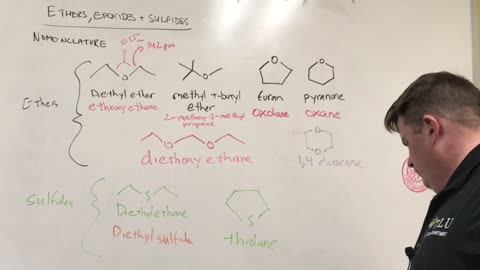 ETHERS, EPOXIDES + SULFIDES
NOMENCLATURE
142pm
O
O
O
O
Diethyl ether
methyl t-butyl
ether
furan
pyranone
Ethers
ethoxyethane
2-methoxy-2-methyl
propane
oxolane
oxane
O
O
O
O
diethoxy ethane
1,4 dioxane
Sulfides
S
S
Diethylethane
Diethyl sulfide
thiolane
LU